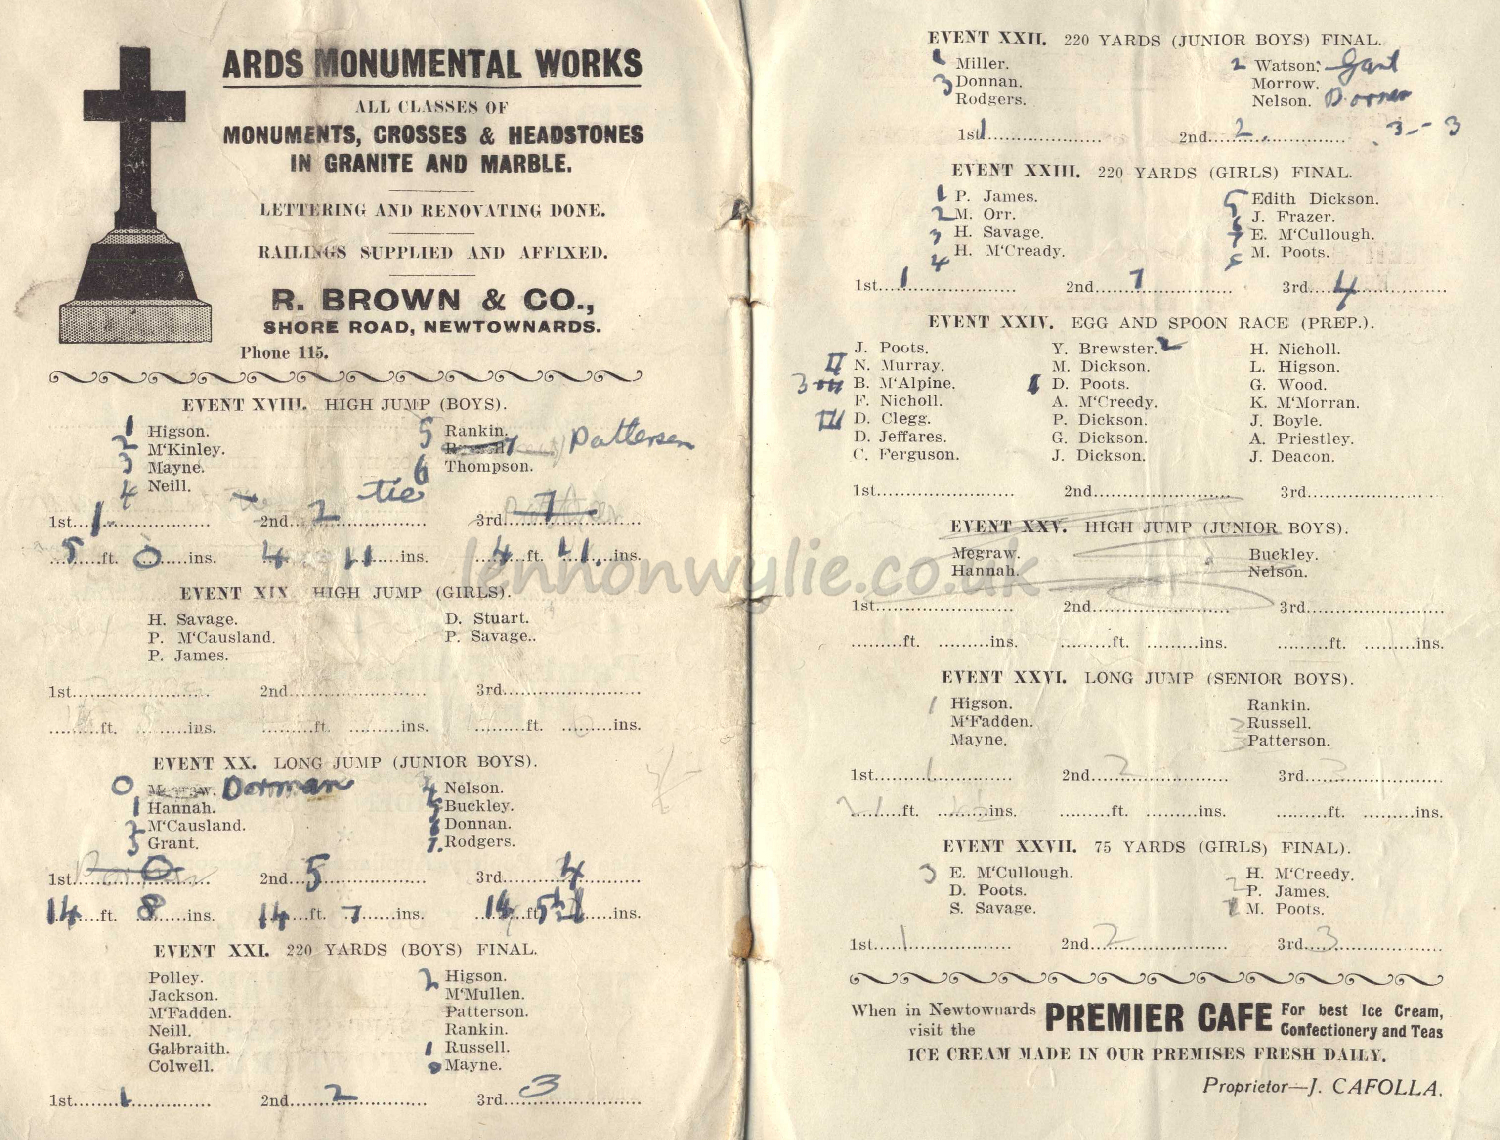 ARDS MONUMENTAL WORKS
ALL CLASSES OF
MONUMENTS, CROSSES & HEADSTONES
IN GRANITE AND MARBLE.
LETTERING AND RENOVATING DONE.
RAILINGS SUPPLIED AND AFFIXED.
R. BROWN & CO.,
SHORE ROAD, NEWTOWNARDS.
Phone 115.
EVENT XVIII. HIGH JUMP (BOYS).
1 Higson. 5 Rankin.
2 M'Kinley. 7 Patterson
3 Mayne. 6 Thompson.
4 Neill.
tie
1st... 1 ... 2nd... 2 ... 3rd... 7 ...
5 ft. 0 ins. 4 11 ins. 4 ft. 11 ins.
EVENT XIX. HIGH JUMP (GIRLS).
H. Savage. D. Stuart.
P. M'Causland. P. Savage..
P. James.
1st........ 2nd........ 3rd........
........ft. ........ins. ........ft. ........ins. ........ft. ........ins.
EVENT XX. LONG JUMP (JUNIOR BOYS).
0 Dorman 4 Nelson.
1 Hannah. 5 Buckley.
2 M'Causland. 6 Donnan.
3 Grant. 7. Rodgers.
1st... 0 ... 2nd... 5 ... 3rd... 4
14 ft. 8 ins. 14 ft. 7 ins. 14 ft. 5½ ins.
EVENT XXI. 220 YARDS (BOYS) FINAL.
Polley. 2 Higson.
Jackson. M'Mullen.
M'Fadden. Patterson.
Neill. Rankin.
Galbraith. 1 Russell.
Colwell. Mayne.
1st... 1 ... 2nd... 2 ... 3rd... 3
EVENT XXII. 220 YARDS (JUNIOR BOYS) FINAL.
1 Miller. 2 Watson.
3 Donnan. Morrow.
Rodgers. Nelson.
1st 1 ... 2nd... 2 ... 3 - 3
EVENT XXIII. 220 YARDS (GIRLS) FINAL.
1 P. James. 5 Edith Dickson.
2 M. Orr. 6 J. Frazer.
3 H. Savage. 7 E. M'Cullough.
4 H. M'Cready. M. Poots.
1st... 1 ... 2nd... 7 ... 3rd... 4
EVENT XXIV. EGG AND SPOON RACE (PREP.).
J. Poots. Y. Brewster. 2 H. Nicholl.
N. Murray. M. Dickson. L. Higson.
3 B. M'Alpine. 1 D. Poots. G. Wood.
F. Nicholl. A. M'Creedy. K. M'Morran.
D. Clegg. P. Dickson. J. Boyle.
D. Jeffares. G. Dickson. A. Priestley.
C. Ferguson. J. Dickson. J. Deacon.
1st........ 2nd........ 3rd........
EVENT XXV. HIGH JUMP (JUNIOR BOYS).
Megraw. Buckley.
Hannah. Nelson.
1st........ 2nd........ 3rd........
........ft. ........ins. ........ft. ........ins. ........ft. ........ins.
EVENT XXVI. LONG JUMP (SENIOR BOYS).
1 Higson. Rankin.
M'Fadden. 2 Russell.
Mayne. 3 Patterson.
1st... 1 ... 2nd... 2 ... 3rd... 3
........ft. ........ins. ........ft. ........ins. ........ft. ........ins.
EVENT XXVII. 75 YARDS (GIRLS) FINAL).
3 E. M'Cullough. H. M'Creedy.
D. Poots. 2 P. James.
S. Savage. 1 M. Poots.
1st... 1 ... 2nd... 2 ... 3rd... 3
When in Newtownards visit the PREMIER CAFE For best Ice Cream, Confectionery and Teas
ICE CREAM MADE IN OUR PREMISES FRESH DAILY.
Proprietor—J. CAFOLLA.
lennonwylie.co.uk